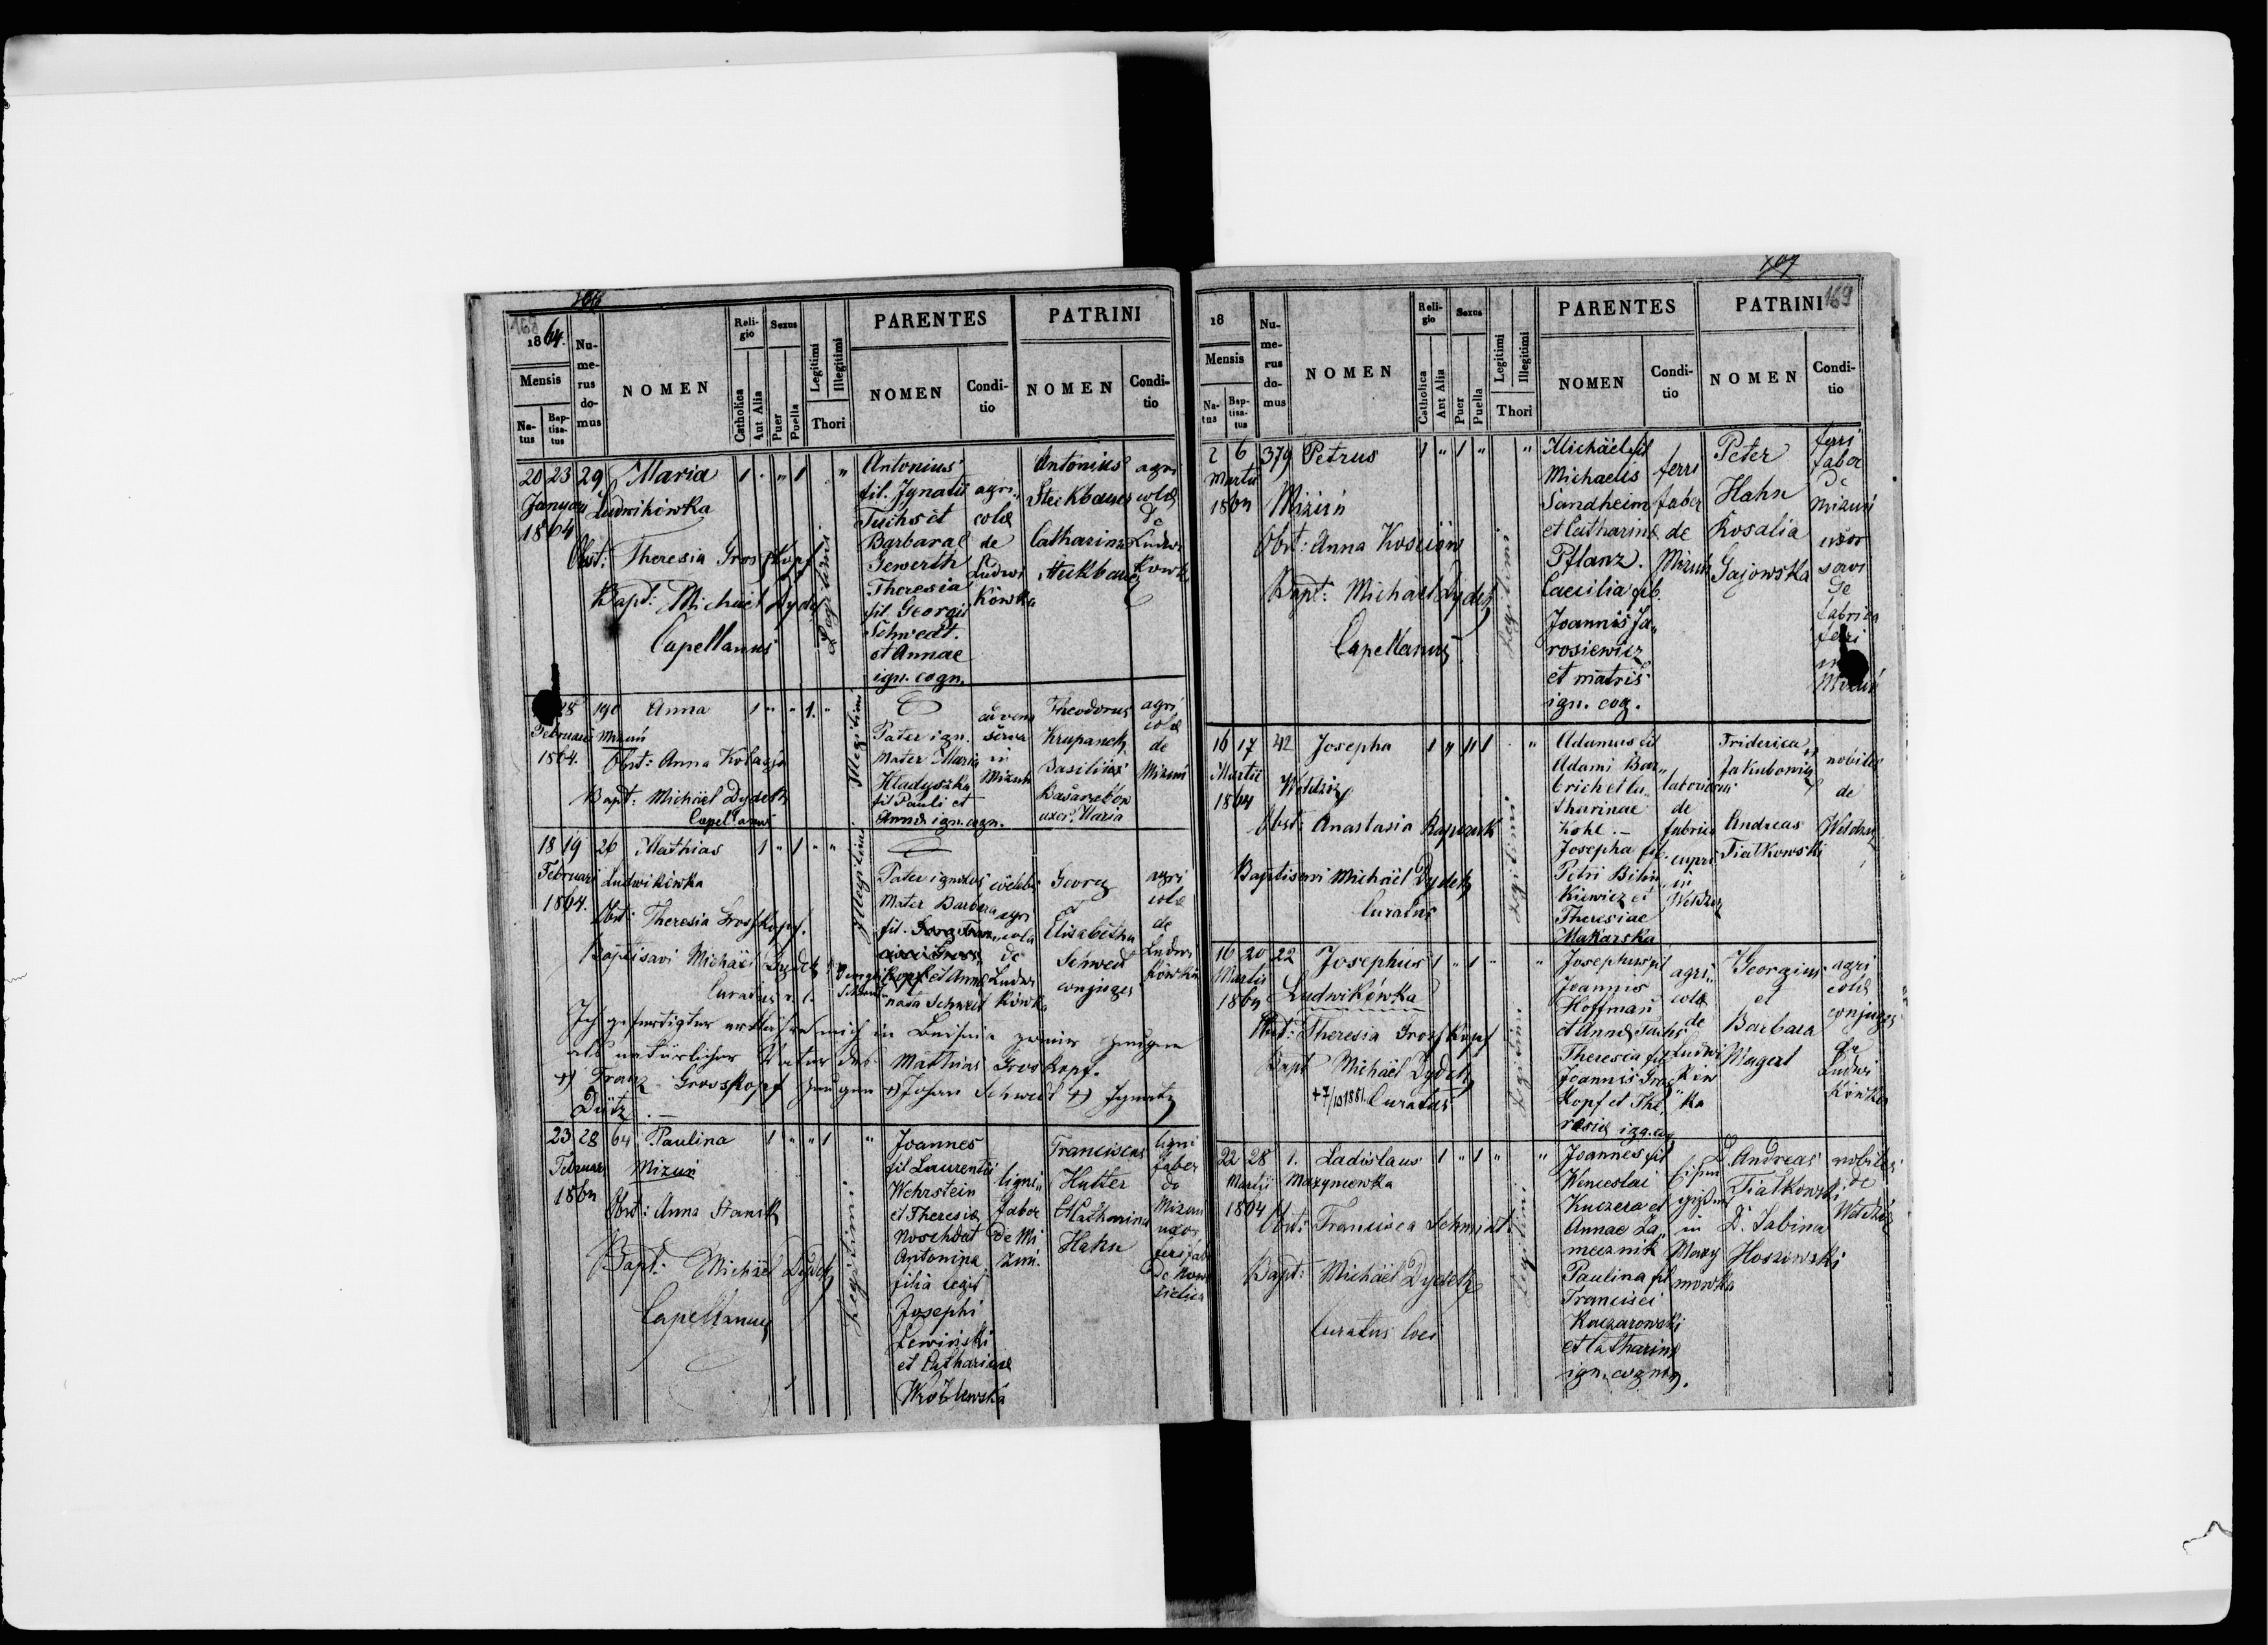 166
168
1864.
Mensis
Na-
tus
Bap-
tisa-
tus
Nu-
me-
rus
do-
mus
NOMEN
Reli-
gio
Catholica
Aut Alia
Sexus
Puer
Puella
Legitimi
Illegitimi
Thori
PARENTES
NOMEN
Condi-
tio
PATRINI
NOMEN
Condi-
tio
20 23 29 Maria 1 " " 1 "
Januar
1864
Ludwikówka
Obst: Theresia Grosskopf
Bapt: Michäel Dydek
Capellanus
Legitimi
Antonius
fil. Ignatii
Fuchs et
Barbarae
Gewerth
Theresia
fil Georgii
Schwedt.
et Annae
ign. cogn.
agri
colæ
de
Ludwi
kówka
Antonius
Steckbauer
Catharina
Steckbauer
agri
colæ
de
Ludwi
kowk
28 190 Anna 1 " " 1. "
Februarii Mizuń
1864.
Obst: Anna Kolasza
Bapt: Michäel Dydek
Capellanus
Illegitimi
Pater ign.
Mater Maria
Hladyszka
fil Pauli et
Annæ ign. cogn.
advena
serva
in
Mizuń
Theodorus
Krupanek
Basilius
uxor. Maria
agri
colæ
de
Mizuń
18 19 26 Mathias 1 " 1 " "
Februari Ludwikówka
1864.
Obst: Theresia Grosskopf.
Baptisavi Michäel Dydek
Curatus
Illegitimi
Pater ignotus
Mater Barbara
fil.
kopf et Anna
nata Schwedt
cœlebs
agri
cola
de
Ludwi
kówka
Georg
et
Elisabetha
Schwedt
conjuges
agri
colæ
de
Ludwi
kówka
Ich gefertigter erkläre mich in Beisein zweier Zeugen
als natürlicher Vater des Mathias Groskopf.
+) Franz Grosskopf Zeugen +) Johan Schwedt +) Ignatz
Dütz
23 28 64 Paulina 1 " " 1 "
Februar Mizuń
1864
Obst: Anna Stanik
Bapt: Michäel Dydek
Capellanus
Legitimi
Joannes
fil Laurentii
Wehrstein
et Theresiæ
Noschdat
Antonina
filia legit
Josephi
Lewiński
et Catharinæ
Wróblewska
ligni
faber
de Mi
zuń.
Franciscus
Hutter
Catharina
Hahn
ligni
faber
de
Mizuń
uxor
feri fab
de Nowo
sielica
167
169
18
Mensis
Na-
tus
Bap-
tisa-
tus
Nu-
me-
rus
do-
mus
NOMEN
Reli-
gio
Catholica
Aut Alia
Sexus
Puer
Puella
Legitimi
Illegitimi
Thori
PARENTES
NOMEN
Condi-
tio
PATRINI
NOMEN
Condi-
tio
2 6 379 Petrus 1 " 1 " "
Martii
1864 Mizuń
Obst: Anna Kosciów
Bapt: Michäel Dydek
Capellanus
Legitimi
Michäel fil
Michaelis
Sandheim
et Catharinæ
Pflanz.
Caecilia fil.
Joannis Ja
rosiewicz
et matris
ign. cog.
ferri
faber
de
Mizuń
Peter
Hahn
Rosalia
Gajowska
ferri
faber
de
Mizuń
uxor
de
fabrica
ferri
Mizuń
16 17 42 Josepha 1 " " 1 "
Martii Wełdzirz
1864
Obst: Anastasia Rapczak
Baptisavi Michäel Dydek
Curatus
Legitimi
Adamus fil
Adami Bar
brich et Ca
tharinae
Kohl.
Josepha fil.
Petri Bihn
kiewicz et
Theresiae
Makarska
de
fabrica
cupri
in
Wełdzirz
Friderica
Jakubowicz
Andreas
Fiałkowski
nobiles
de
Wełdzirz
16 20 22 Josephus 1 " 1 " "
Martii
1864 Ludwikówka
Obst: Theresia Grosskopf
Bapt Michäel Dydek
+7/10 1881. Curatus
Legitimi
Josephus fil
Joannis
Hoffman
et Annæ Fuchs
Theresia fil
Joannis Gros
kopf et The
resiæ ign. cog
agri
colæ
de
Ludwi
ków
ka
Georgius
et
Barbara
Wagerl
agri
colæ
conjuges
de
Ludwi
kówka
22 28 1. Ladislaus 1 " 1 " "
Martii Maxymówka
1864
Obst: Francisca Schmidt
Bapt: Michäel Dydek
Curatus loci
Legitimi
Joannes fil
Wenceslai
Kuczera et
Annae La
mecznik
Paulina fil
Francisci
Kaczarowski
et Catharinæ
ign. cognom.
in
Maxy
mowka
D. Andreas
Fiałkowski
D. Sabina
Hoszowski
nobiles
de
Wełdzirz